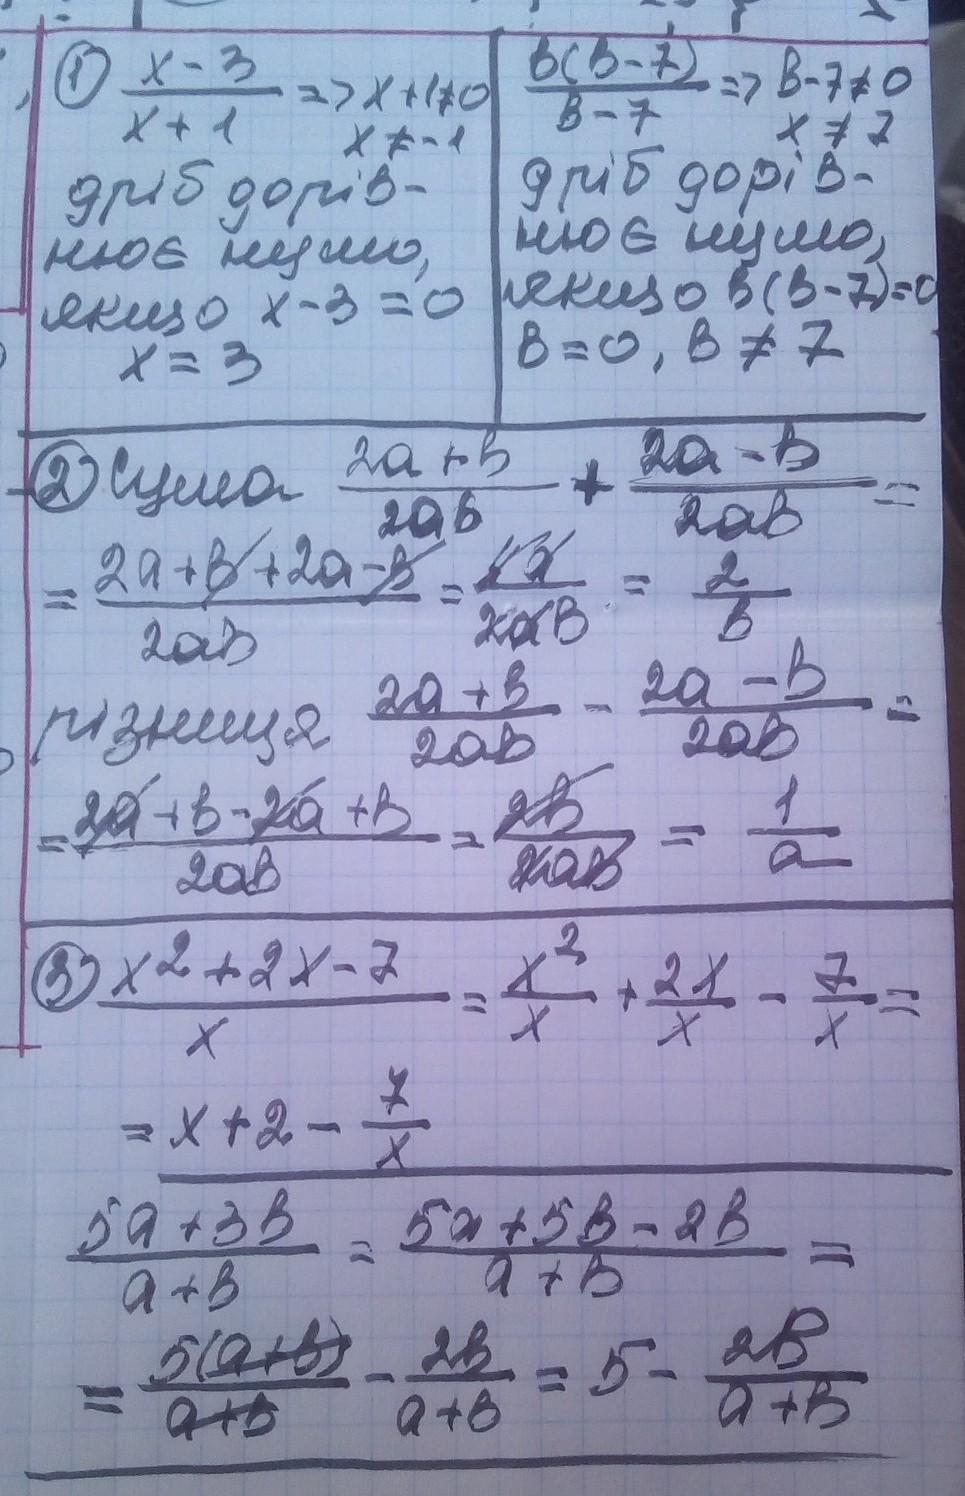 ① (x-3)/(x+1) => x+1≠0
x≠-1
дріб дорів-
нює нулю,
якщо x-3=0
x=3
в(в-7)/(в-7) => в-7≠0
x≠7
дріб дорів-
нює нулю,
якщо в(в-7)=0
в=0, в≠7
② Сума (2a+в)/(2aв) + (2a-в)/(2aв) =
= (2a+в+2a-в)/(2aв) = (4a)/(2aв) = 2/в
різниця (2a+в)/(2aв) - (2a-в)/(2aв) =
= (2a+в-2a+в)/(2aв) = (2в)/(2aв) = 1/a
③ (x²+2x-7)/x = x²/x + 2x/x - 7/x =
= x+2 - 7/x
(5a+3в)/(a+в) = (5a+5в-2в)/(a+в) =
= 5(a+в)/(a+в) - 2в/(a+в) = 5 - 2в/(a+в)